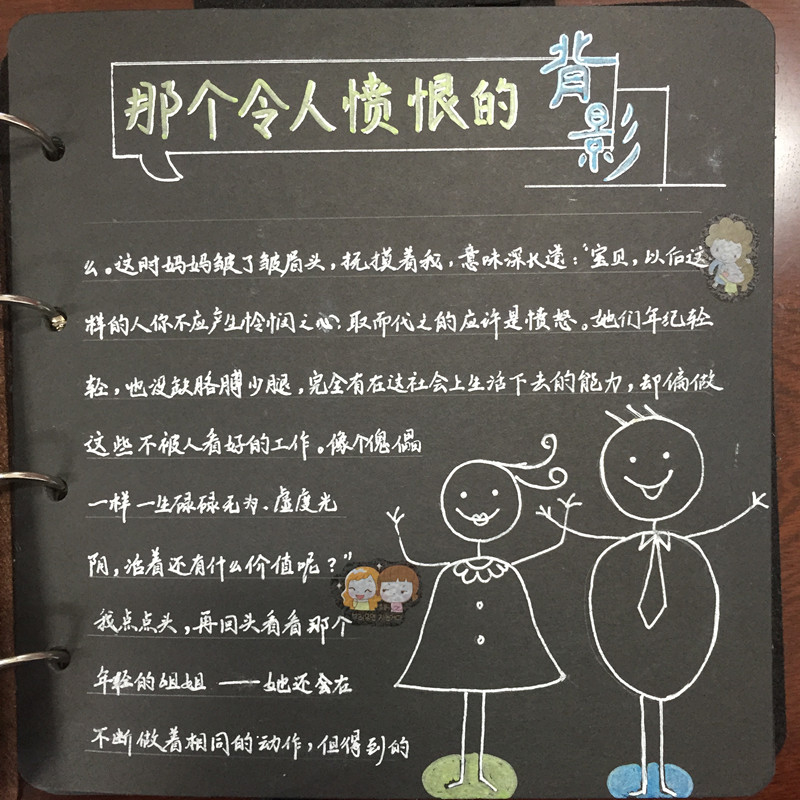 那个令人愤恨的背影
么。这时妈妈皱了皱眉头，抚摸着我，意味深长道：“宝贝，以后这
样的人你不应产生怜悯之心，取而代之的应许是愤怒。她们年纪轻
轻，也没缺胳膊少腿，完全有在这社会上生活下去的能力，却偏做
这些不被人看好的工作。像个傀儡
一样一生碌碌无为、虚度光
阴，活着还有什么价值呢？”
我点点头，再回头看看那个
年轻的姐姐——她还会在
不断做着相同的动作，但得到的